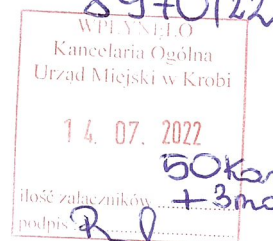 8970/22
WPŁYNĘŁO
Kancelaria Ogólna
Urząd Miejski w Krobi
14. 07. 2022
50 
ilość załączników + 3
podpis